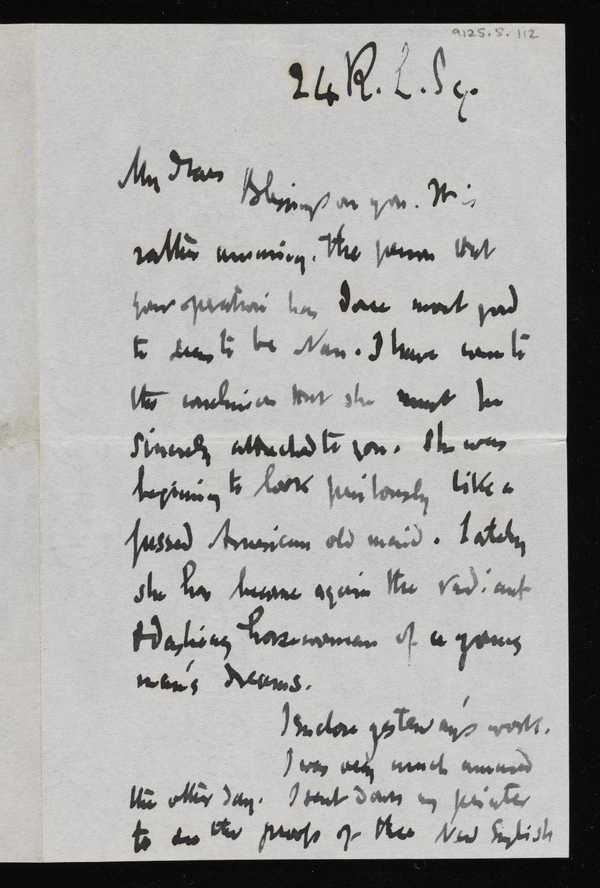 9125.S.112
24 R. L. Sq.
My dear
Blessings on you. It is
rather amusing. The person that
your operation has done most good
to seems to be Nan. I have come to
the conclusion that she must be
sincerely attached to you. She was
beginning to look perilously like a
fussed American old maid. Lately
she has become again the radiant
& dashing horsewoman of a young
man's dreams.
I enclose yesterday's work.
I was very much amused
the other day. I sent down my printer
to see the proofs of the New English